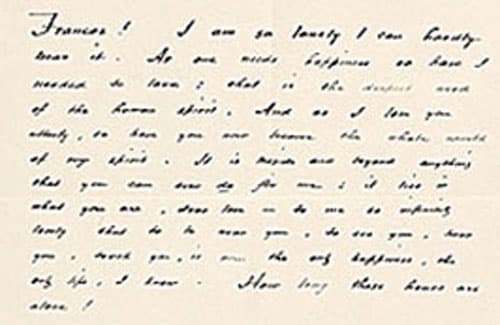 Frances! I am so lonely I can hardly
bear it. As one needs happiness so have I
needed love; that is the deepest need
of the human spirit. And as I love you
utterly, so have you now become the whole world
of my spirit. It is beside and beyond anything
that you can ever do for me; it lies in
what you are, dear love to me so infinitely
lovely that to be near you, to see you, hear
you, touch you, is now the only happiness, the
only life, I know. How long these hours are
alone!